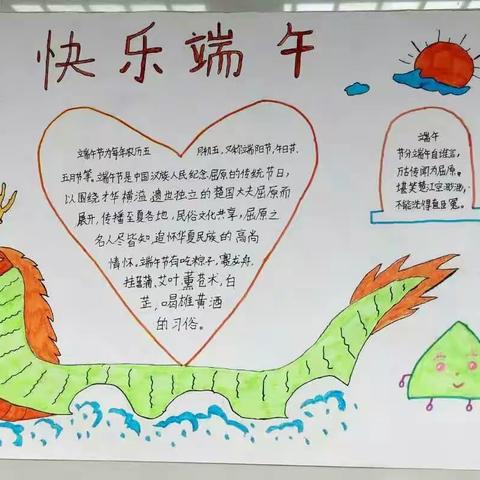 快乐端午
端午节为每年农历五 月初五,又称端阳节,午日节.
五月节等.端午节是中国汉族人民纪念屈原的传统节日,
以围绕才华横溢.遗世独立的楚国大夫屈原而
展开,传播至夏各地,民俗文化共享,屈原之
名人尽皆知,追怀华夏民族的高尚
情怀,端午节有吃粽子,赛龙舟,
挂菖蒲、艾叶,薰苍术,白
芷,喝雄黄酒
的习俗。
端午
节分端午自谁言,
万古传闻为屈原。
堪笑楚江空渺渺,
不能洗得直臣冤。